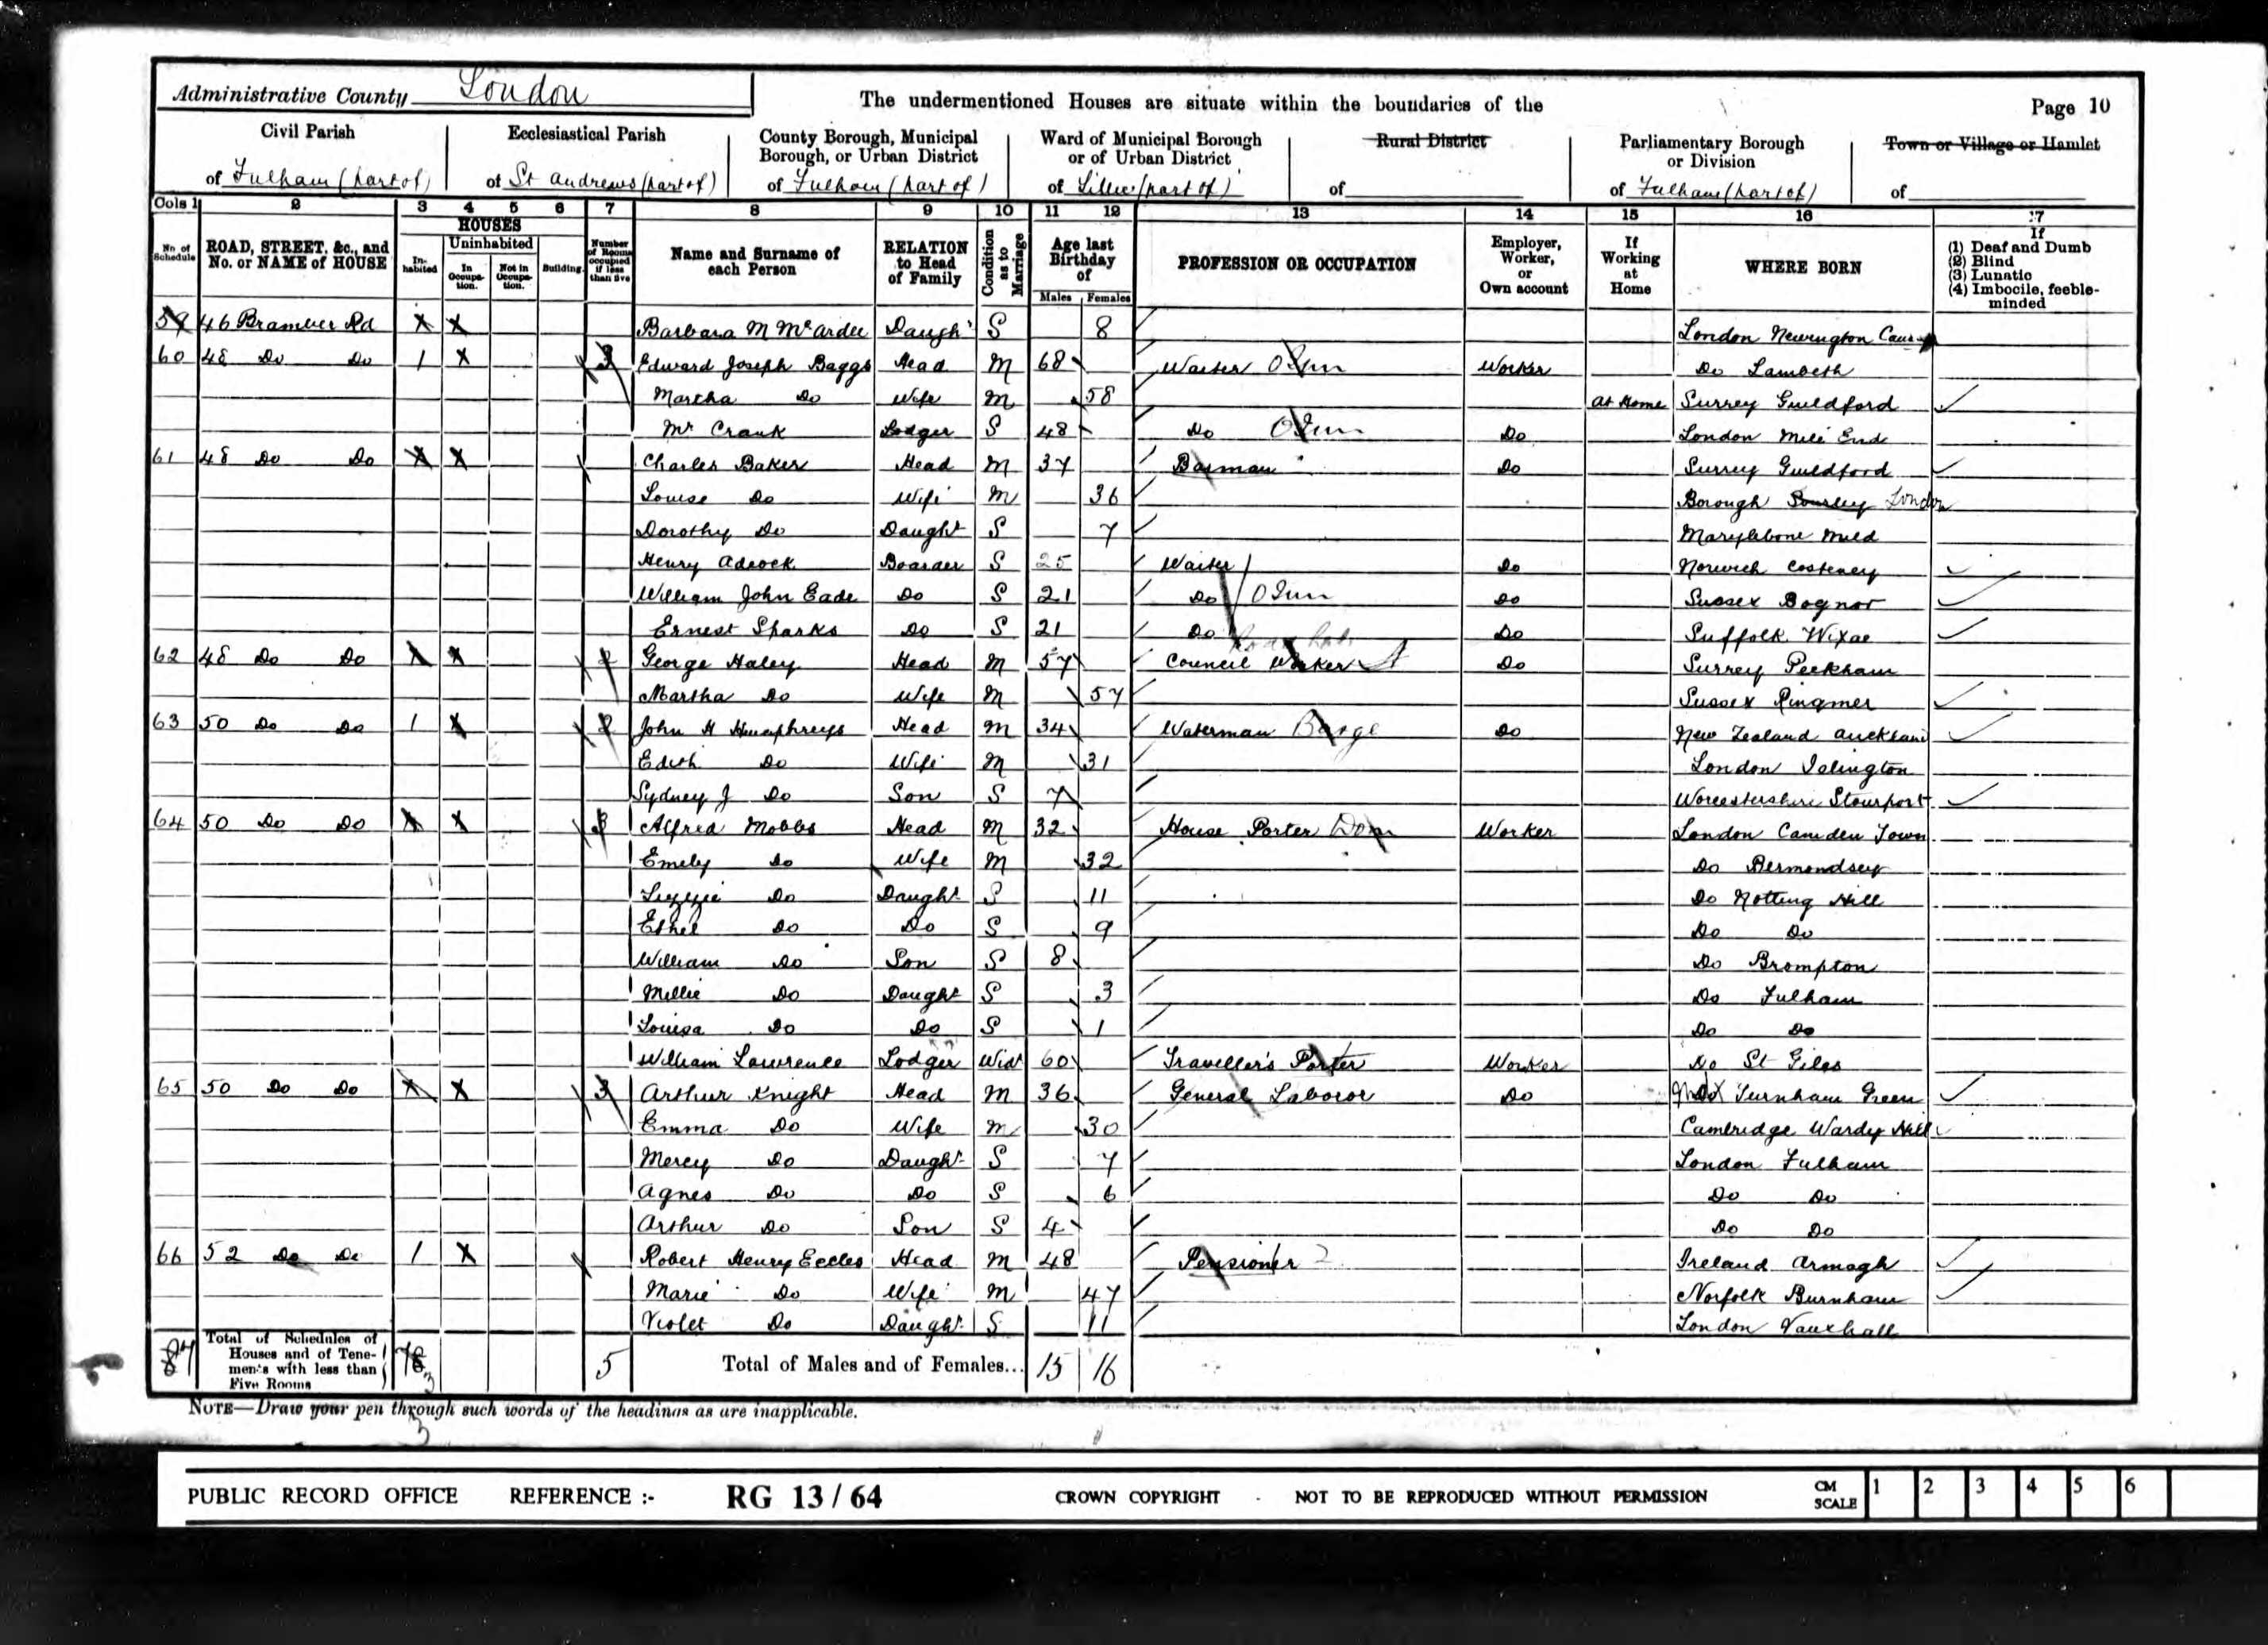 Administrative County London
The undermentioned Houses are situate within the boundaries of the
Page 10
Civil Parish
of Fulham (part of)
Ecclesiastical Parish
of St Andrews (part of)
County Borough, Municipal
Borough, or Urban District
of Fulham (part of)
Ward of Municipal Borough
or of Urban District
of Lillie (part of)
Rural District
of
Parliamentary Borough
or Division
of Fulham (part of)
Town or Village or Hamlet
of
Cols 1 2 3 4 5 6 7 8 9 10 11 12 13 14 15 16 17
No. of Schedule
ROAD, STREET, &c., and
No. or NAME of HOUSE
HOUSES
Inhabited
Uninhabited
In Occupation.
Not in Occupation.
Building.
Number of Rooms occupied if less than five
Name and Surname of
each Person
RELATION
to Head
of Family
Condition as to Marriage
Age last
Birthday
of
Males Females
PROFESSION OR OCCUPATION
Employer,
Worker,
or
Own account
If
Working
at
Home
WHERE BORN
If
(1) Deaf and Dumb
(2) Blind
(3) Lunatic
(4) Imbecile, feeble-
minded
59 46 Bramber Rd X X Barbara M McArdee Daugh S 8 London Newington
60 48 Do Do 1 X 3 Edward Joseph Baggs Head M 68 Waiter Worker Do Lambeth
Martha Do Wife M 58 At Home Surrey Guildford
Mr Crank Lodger S 48 Do Do London Mile End
61 48 Do Do X X Charles Baker Head M 37 Barman Do Surrey Guildford
Louise Do Wife M 36 Borough London
Dorothy Do Daught S 7 Marylebone
Henry Adcock Boarder S 25 Waiter Do Norwich Costesey
William John Eade Do S 21 Do Do Sussex Bognor
Ernest Sparks Do S 21 Do Do Suffolk Wixae
62 48 Do Do X X George Haley Head M 57 Council Worker Do Surrey Peckham
Martha Do Wife M 57 Sussex Ringmer
63 50 Do Do 1 X John H Humphreys Head M 34 Waterman Barge Do New Zealand Auckland
Edith Do Wife M 31 London Islington
Sydney J Do Son S 7 Worcestershire Stourport
64 50 Do Do X X 3 Alfred Mobbs Head M 32 House Porter Dom Worker London Camden Town
Emely Do Wife M 32 Do Bermondsey
Lizzie Do Daught S 11 Do Notting Hill
Ethel Do Do S 9 Do Do
William Do Son S 8 Do Brompton
Millie Do Daught S 3 Do Fulham
Louisa Do Do S 1 Do Do
William Lawrence Lodger Wid 60 Traveller's Porter Worker Do St Giles
65 50 Do Do X X 3 Arthur Knight Head M 36 General Laboror Do Turnham Green
Emma Do Wife M 30 Cambridge Wardy Hill
Mercy Do Daught S 7 London Fulham
Agnes Do Do S 6 Do Do
Arthur Do Son S 4 Do Do
66 52 Do Do 1 X Robert Henry Eccles Head M 48 Pensioner Ireland Armagh
Marie Do Wife M 47 Norfolk Burnham
Violet Do Daught S 11 London Vauxhall
Total of Schedules of
Houses and of Tene-
ments with less than
Five Rooms
5 Total of Males and of Females... 15 16
NOTE—Draw your pen through such words of the headings as are inapplicable.
PUBLIC RECORD OFFICE REFERENCE :- RG 13 / 64 CROWN COPYRIGHT - NOT TO BE REPRODUCED WITHOUT PERMISSION CM SCALE 1 2 3 4 5 6